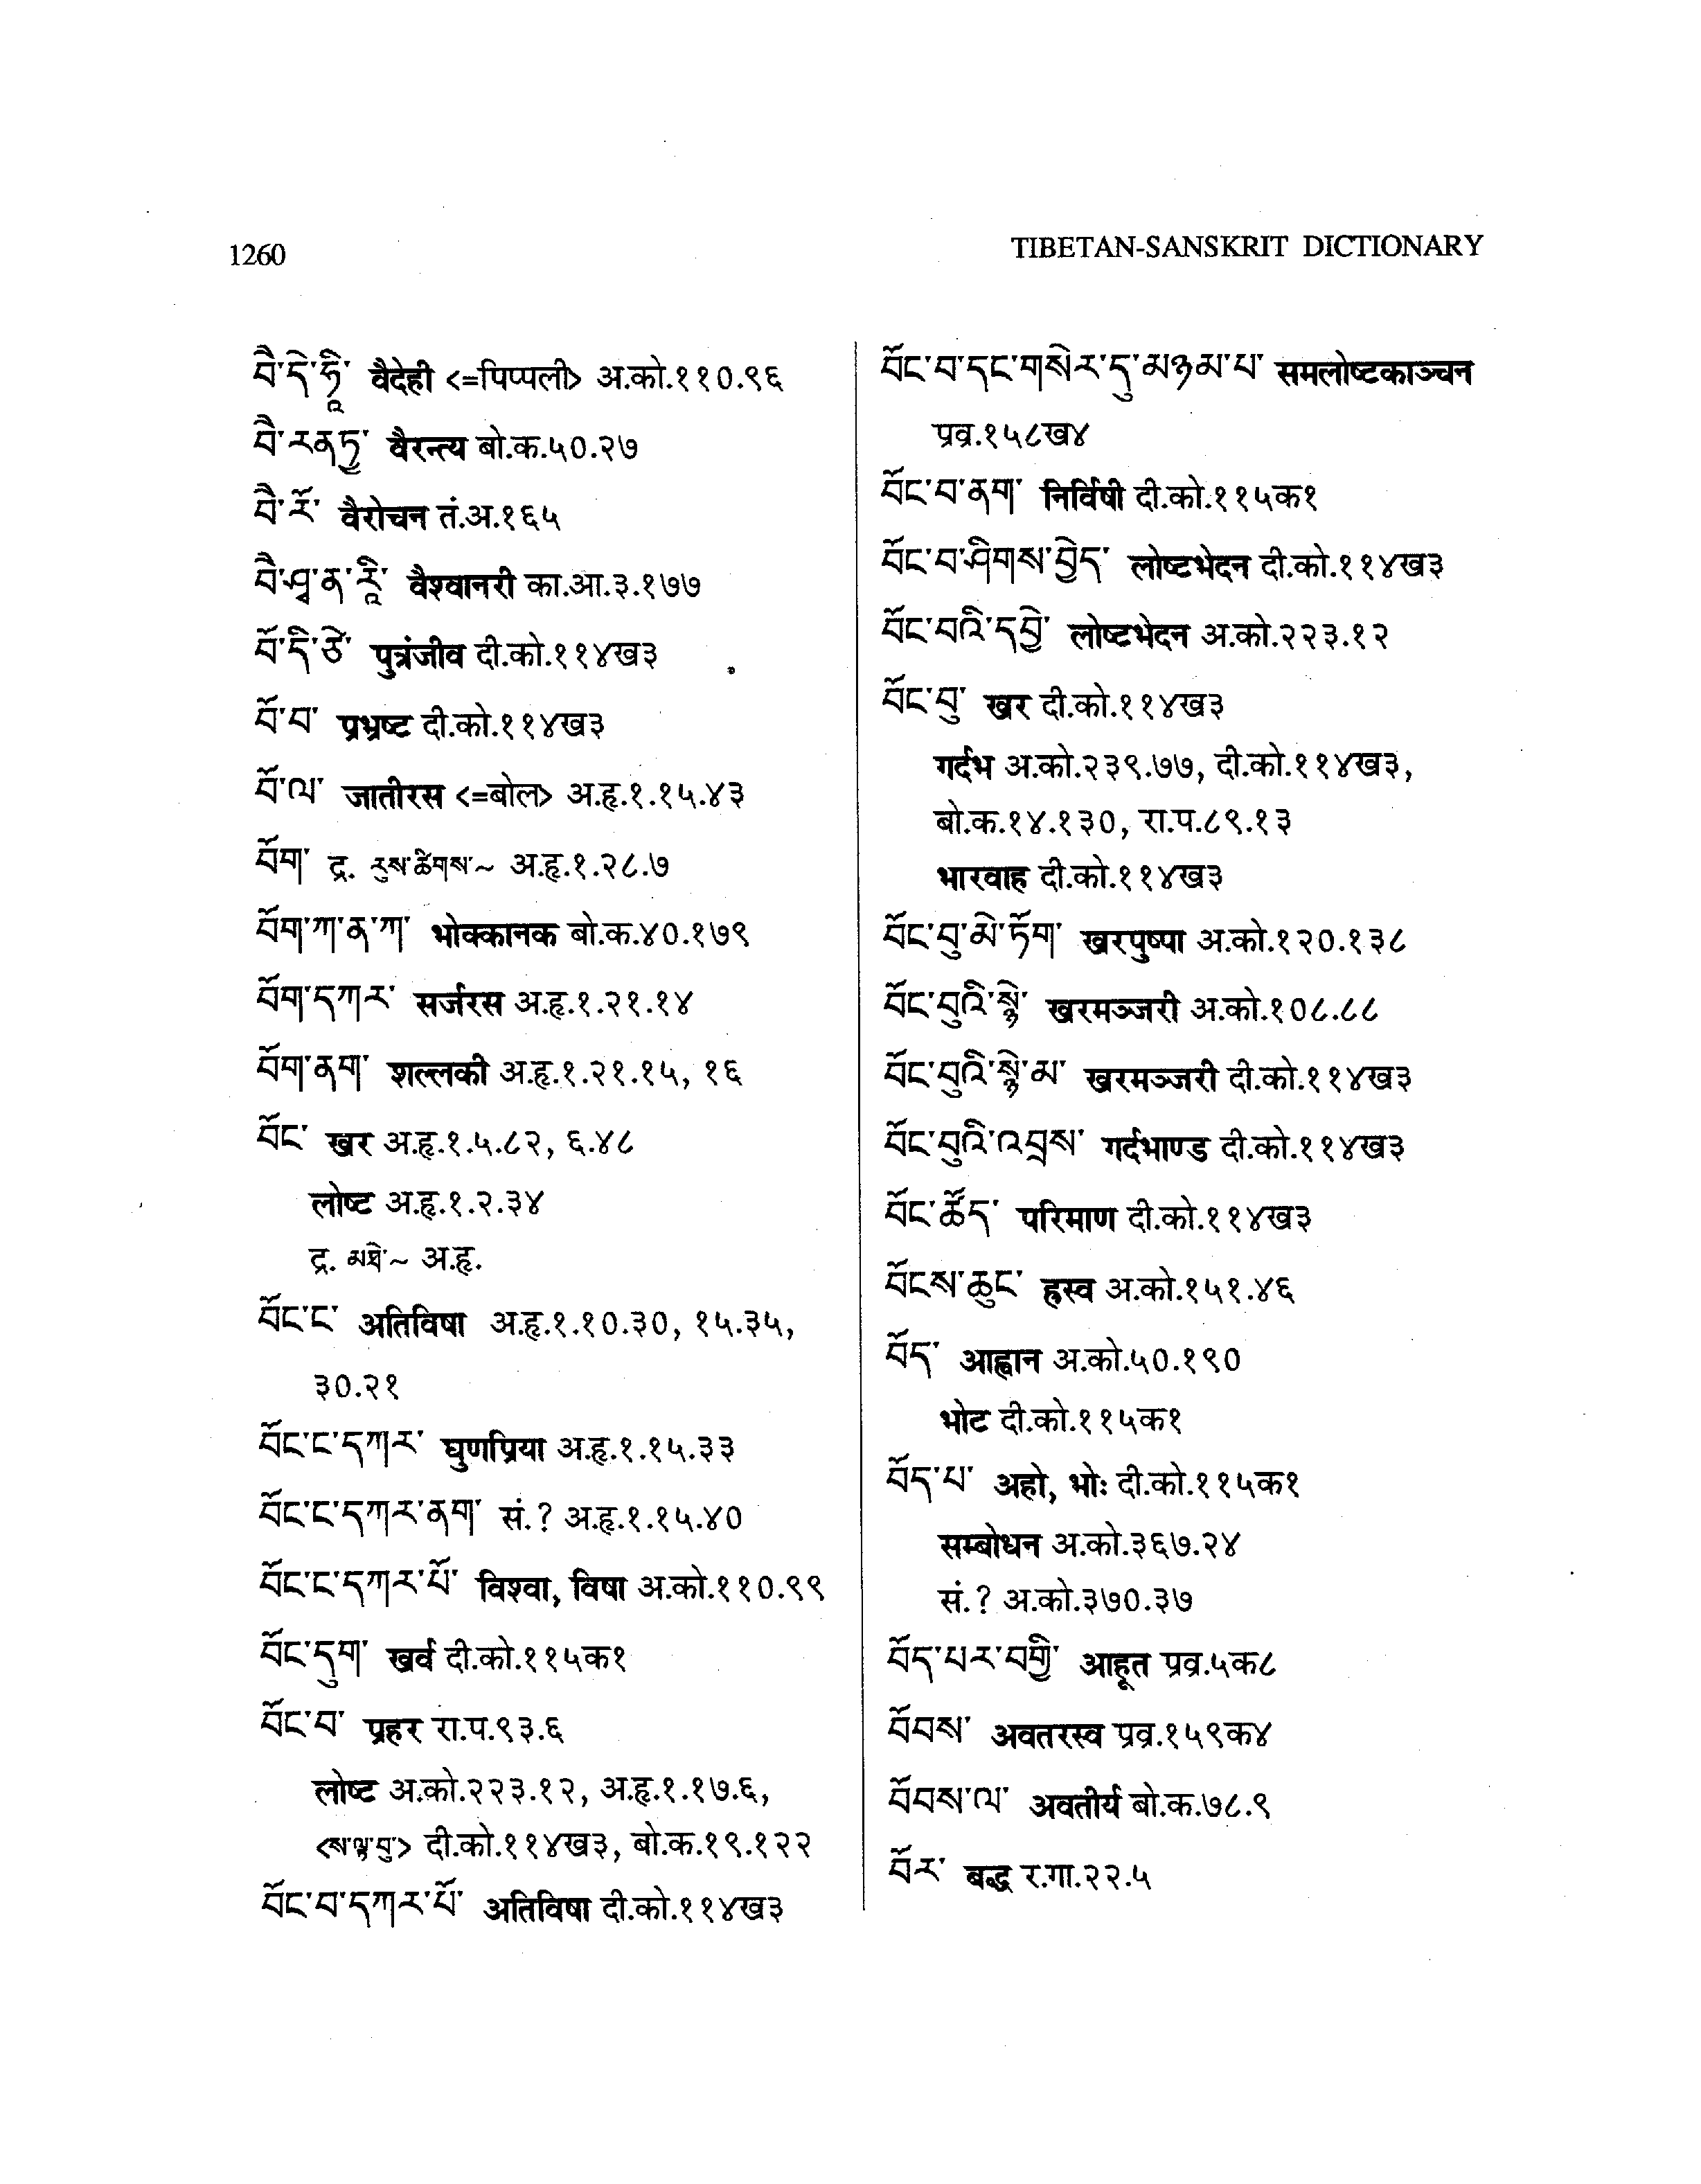 1260
TIBETAN-SANSKRIT DICTIONARY
བཻ་དེ་ཧཱི་ वैदेही <=पिप्पली> अ.को.११०.९६
བཻ་རནཏྱ་ वैरन्त्य बो.क.५०.२७
བཻ་རོ་ वैरोचन तं.अ.१६५
བཻ་ཤྭ་ན་རཱི་ वैश्वानरी का.आ.३.१७७
བོ་དི་ཙེ་ पुत्रंजीव दी.को.११४ख३
བོ་བ་ प्रभ्रष्ट दी.को.११४ख३
བོ་ལ་ जातीरस <=बोल> अ.हृ.१.१५.४३
བོག་ द्र. རུས་ཚིགས་~ अ.हृ.१.२८.७
བོག་ཀ་ན་ཀ་ भोक्कानक बो.क.४०.१७९
བོག་དཀར་ सर्जरस अ.हृ.१.२१.१४
བོག་ནག་ शल्लकी अ.हृ.१.२१.१५, १६
བོང་ खर अ.हृ.१.५.८२, ६.४८
लोष्ट अ.हृ.१.२.३४
द्र. མཐེ་~ अ.हृ.
བོང་ང་ अतिविषा अ.हृ.१.१०.३०, १५.३५,
३०.२१
བོང་ང་དཀར་ घुणप्रिया अ.हृ.१.१५.३३
བོང་ང་དཀར་ནག་ सं.? अ.हृ.१.१५.४०
བོང་ང་དཀར་པོ་ विश्वा, विषा अ.को.११०.९९
བོང་དུག་ खर्व दी.को.११५क१
བོང་བ་ प्रहर रा.प.९३.६
लोष्ट अ.को.२२३.१२, अ.हृ.१.१७.६,
<ས་ལྟ་བུ> दी.को.११४ख३, बो.क.१९.१२२
བོང་བ་དཀར་པོ་ अतिविषा दी.को.११४ख३
བོང་བ་དང་གསེར་དུ་མཉམ་པ་ समलोष्टकाञ्चन
प्रव्र.१५८ख४
བོང་བ་ནག་ निर्विषी दी.को.११५क१
བོང་བ་ཤིགས་བྱེད་ लोष्टभेदन दी.को.११४ख३
བོང་བའི་དབྱེ་ लोष्टभेदन अ.को.२२३.१२
བོང་བུ་ खर दी.को.११४ख३
गर्दभ अ.को.२३९.७७, दी.को.११४ख३,
बो.क.१४.१३०, रा.प.८९.१३
भारवाह दी.को.११४ख३
བོང་བུ་མེ་ཏོག་ खरपुष्पा अ.को.१२०.१३८
བོང་བུའི་སྙེ་ खरमञ्जरी अ.को.१०८.८८
བོང་བུའི་སྙེ་མ་ खरमञ्जरी दी.को.११४ख३
བོང་བུའི་འབྲས་ गर्दभाण्ड दी.को.११४ख३
བོང་ཚོད་ परिमाण दी.को.११४ख३
བོངས་ཆུང་ ह्रस्व अ.को.१५१.४६
བོད་ आह्वान अ.को.५०.१९०
भोट दी.को.११५क१
བོད་པ་ अहो, भोः दी.को.११५क१
सम्बोधन अ.को.३६७.२४
सं.? अ.को.३७०.३७
བོད་པར་བགྱི་ आहूत प्रव्र.५क८
བོབས་ अवतरस्व प्रव्र.१५९क४
བོབས་ལ་ अवतीर्य बो.क.७८.९
བོར་ बद्ध र.गा.२२.५